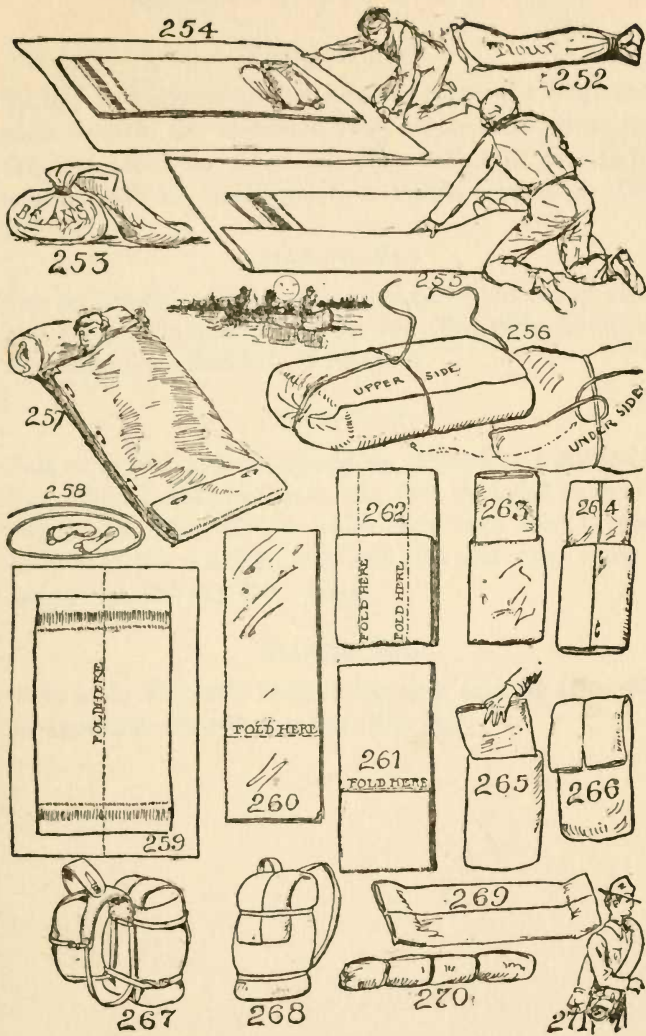 254
Flour
252
BEANS
253
255
256
UPPER SIDE
UNDER SIDE
257
258
262
FOLD HERE
FOLD HERE
263
264
FOLD HERE
259
FOLD HERE
260
261
FOLD HERE
265
266
267
268
269
270
271